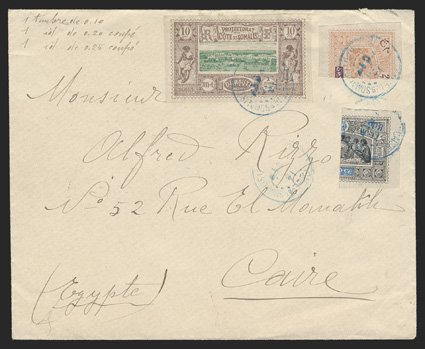 1 timbre de 0.10
1 id. de 0.20 coupé
1 id. de 0.25 coupé
10 PROTECTORAT 10
CÔTE DES SOMALIS
DJIBOUTI
Monsieur
Alfred Rizzo
No 52 Rue El
Caire
(Egypte)